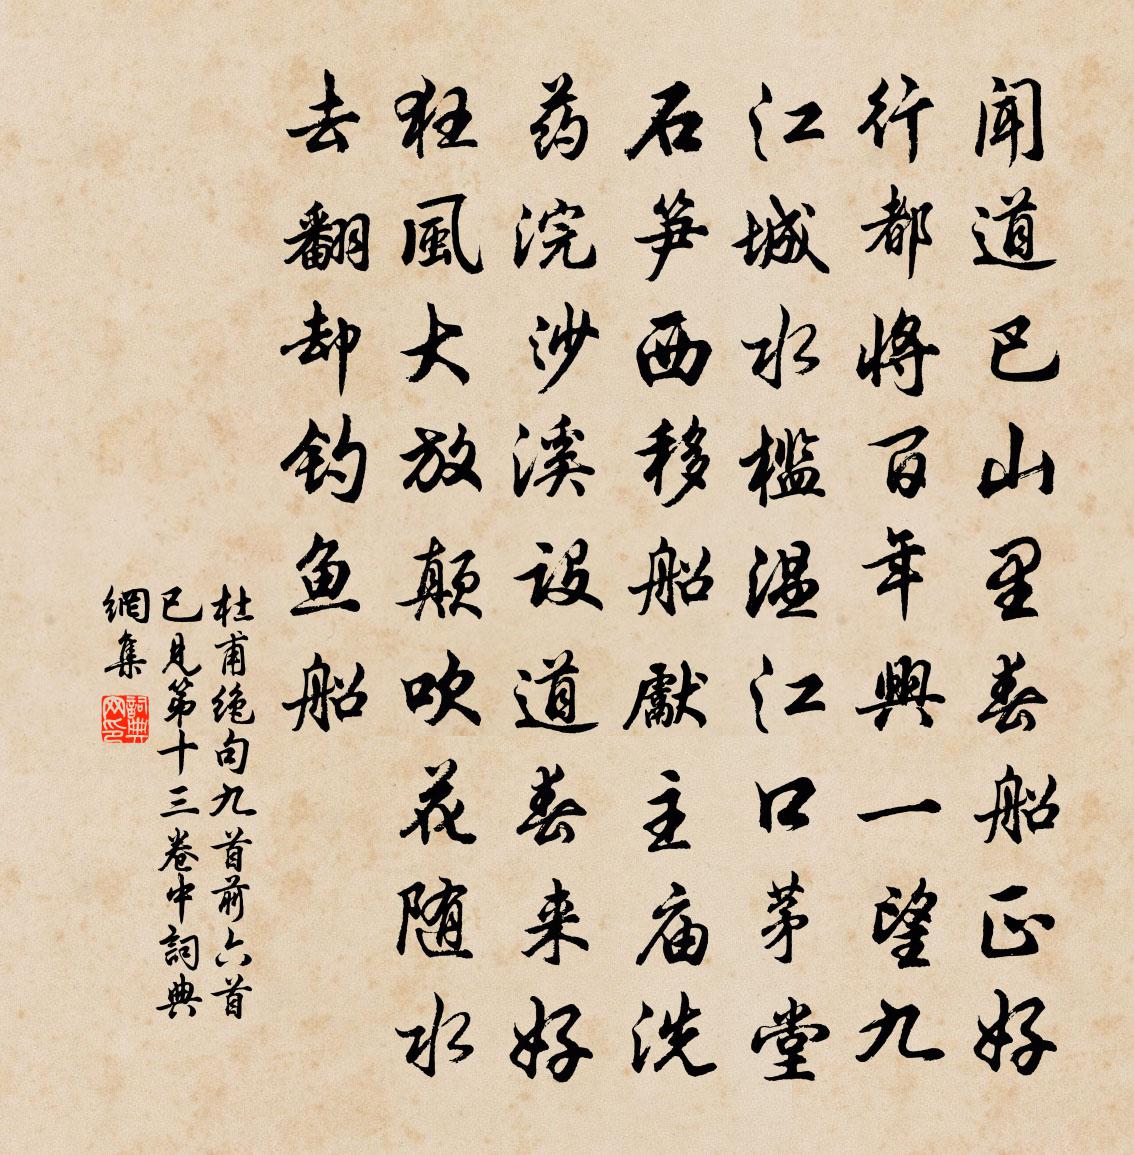 闻道巴山里春船正好
行都将百年興一望九
江城水槛温江口茅堂
石笋西移船獻主庙洗
药浣沙溪设道春来好
狂風大放颠吹花随水
去翻却钓鱼船
杜甫绝句九首前六首
已見第十三卷中詞典
網集
詞典网印